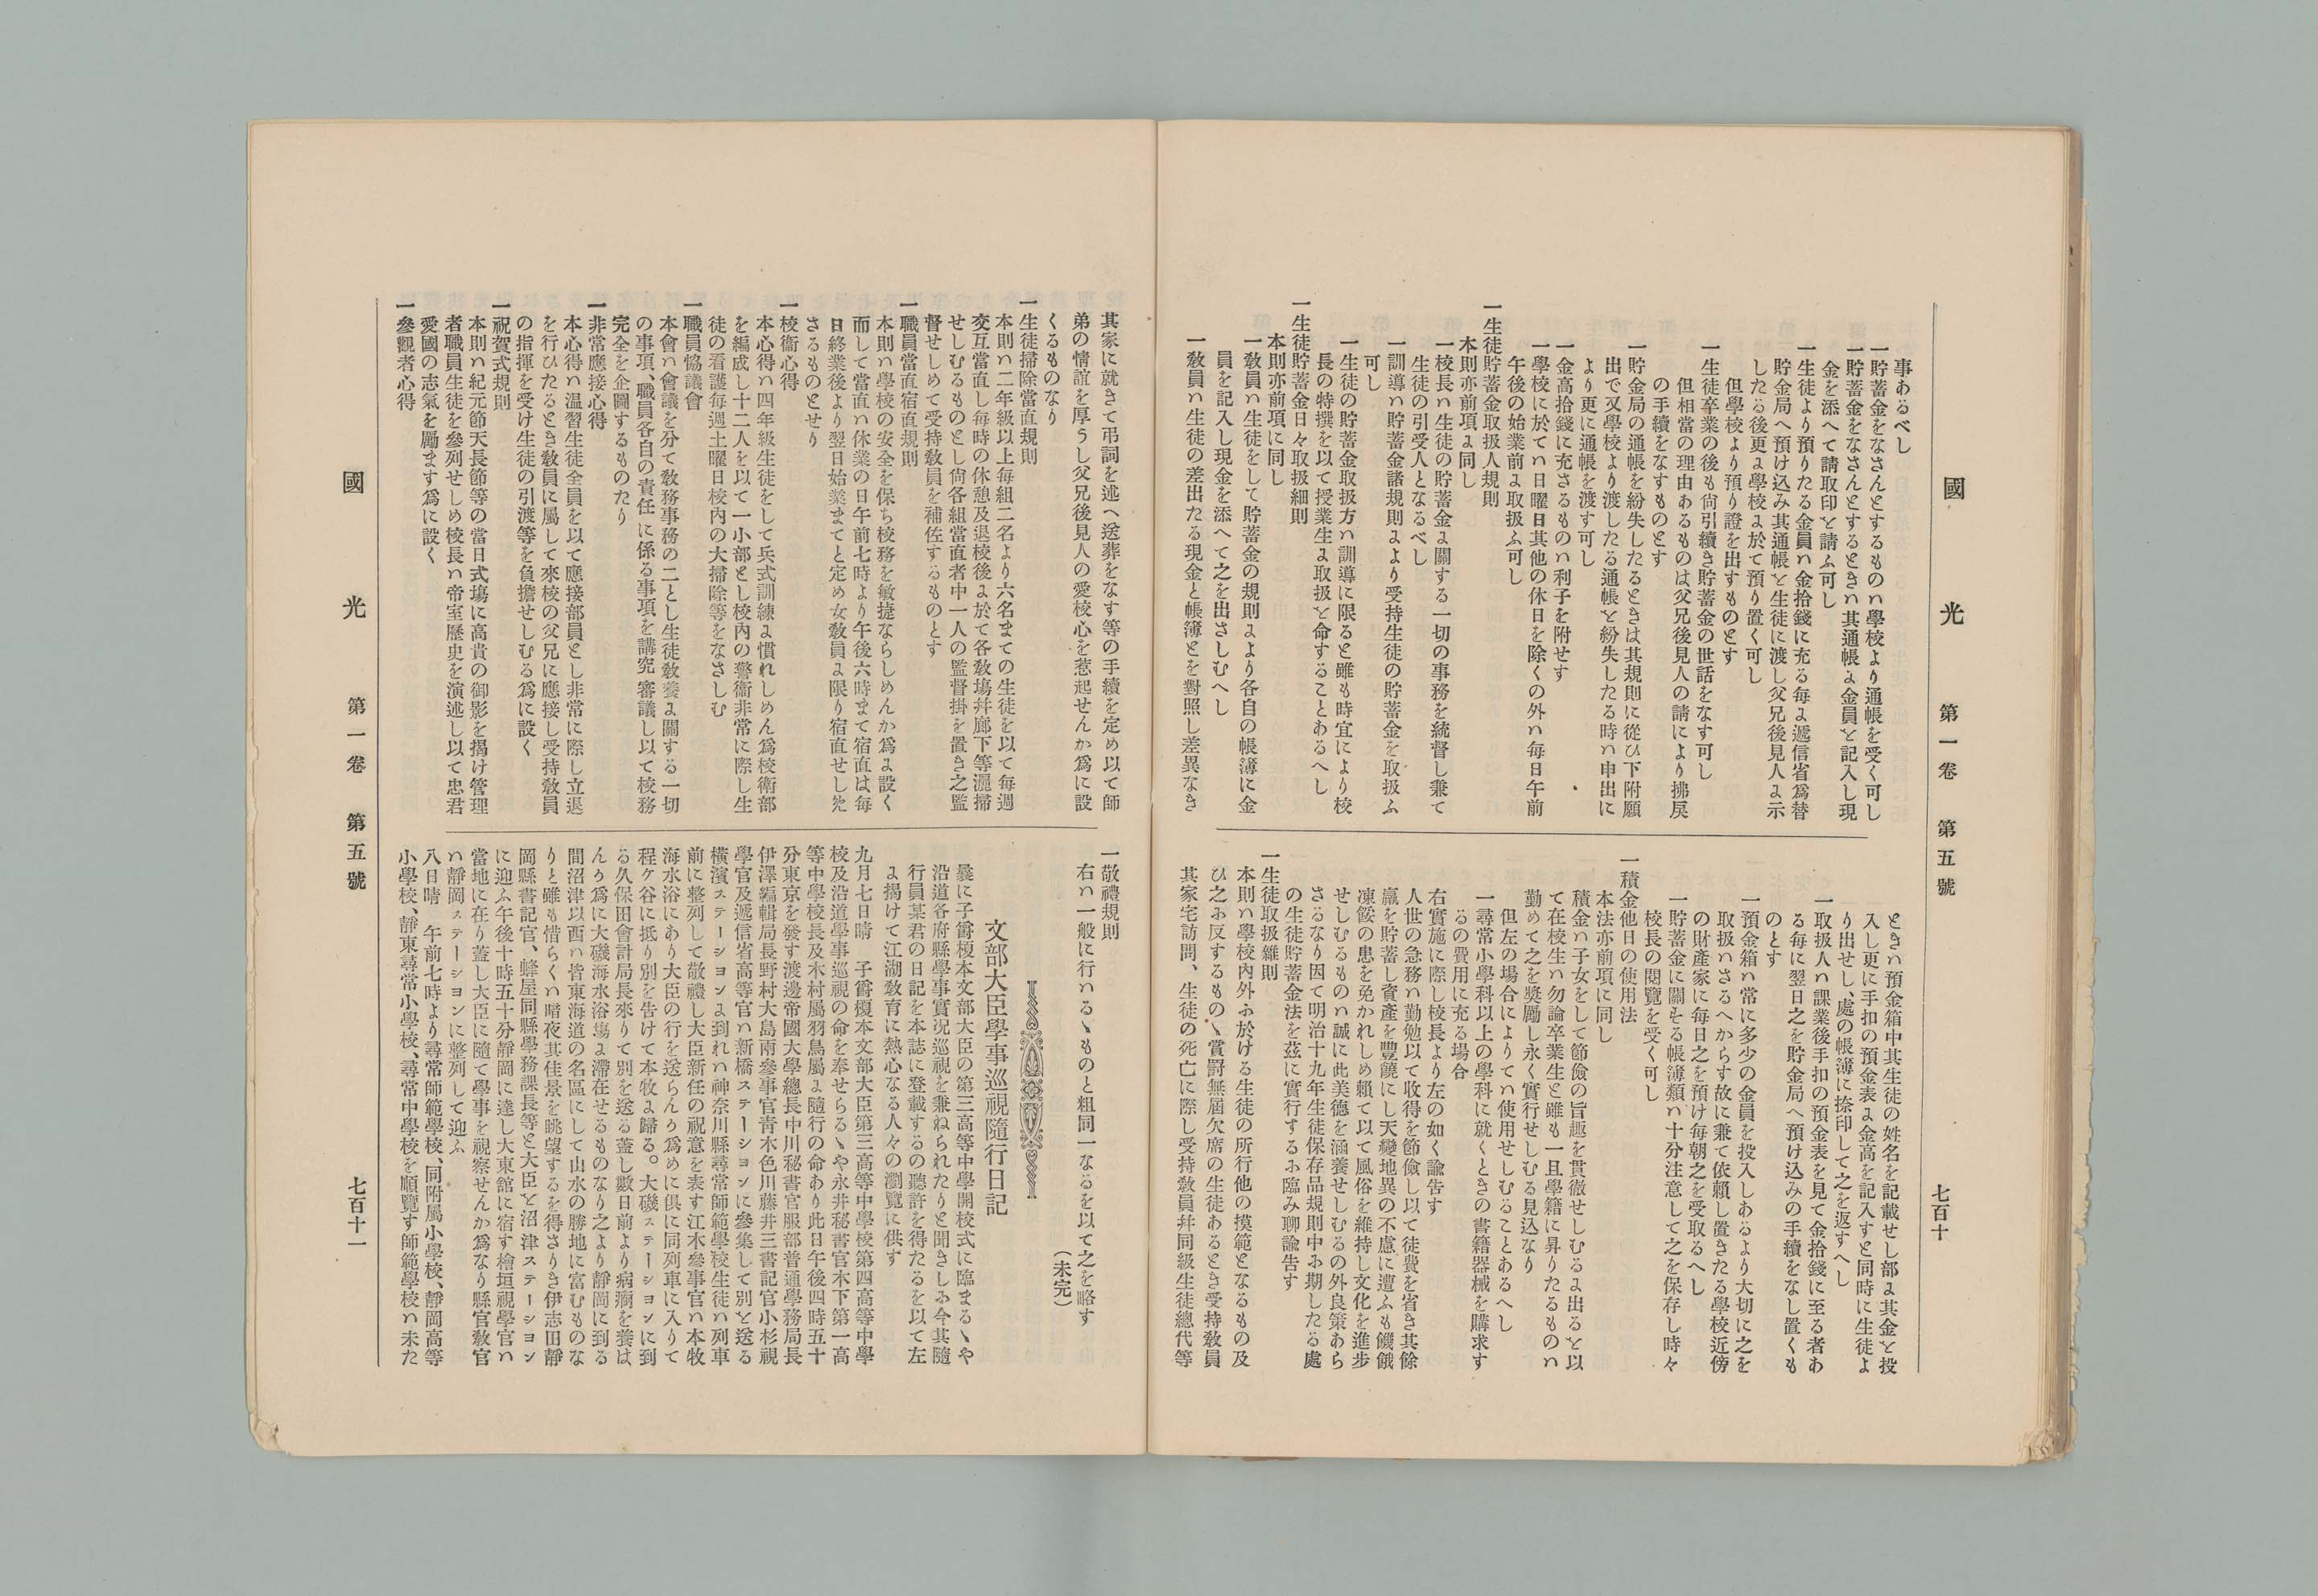 國光 第一卷 第五號 七百十
事あるべし
一貯蓄金をなさんとするものハ學校より通帳を受く可し
一貯蓄金をなさんとするときハ其通帳に金員を記入し現
金を添へて請取印を請ふ可し
一生徒より預りたる金員ハ金拾錢に充る毎に遞信省爲替
貯金局へ預け込み其通帳を生徒に渡し父兄後見人に示
したる後更に學校に於て預り置く可し
但學校より預り證を出すものとす
一生徒卒業の後も尙引續き貯蓄金の世話をなす可し
但相當の理由あるものは父兄後見人の請により拂戾
の手續をなすものとす
一貯金局の通帳を紛失したるときは其規則に從ひ下附願
出で又學校より渡したる通帳を紛失したる時ハ申出に
より更に通帳を渡す可し
一金高拾錢に充さるものハ利子を附せす
一學校に於てハ日曜日其他の休日を除くの外ハ每日午前
午後の始業前に取扱ふ可し
一生徒貯蓄金取扱人規則
本則亦前項に同し
一校長ハ生徒の貯蓄金に關する一切の事務を統督し兼て
生徒の引受人となるべし
一訓導ハ貯蓄金諸規則により受持生徒の貯蓄金を取扱ふ
可し
一生徒の貯蓄金取扱方ハ訓導に限ると雖も時宜により校
長の特撰を以て授業生に取扱を命することあるへし
一生徒貯蓄金日々取扱細則
本則亦前項に同し
一敎員ハ生徒をして貯蓄金の規則により各自の帳簿に金
員を記入し現金を添へて之を出さしむへし
一敎員ハ生徒の差出たる現金と帳簿とを對照し差異なき
ときハ預金箱中其生徒の姓名を記載せし部に其金を投
入し更に手扣の預金表に金高を記入すると同時に生徒よ
り出せし處の帳簿に捺印して之を返すへし
一取扱人ハ課業後手扣の預金表を見て金拾錢に至る者あ
る每に翌日之を貯金局へ預け込みの手續をなし置くも
のとす
一預金箱ハ常に多少の金員を投入しあるより大切に之を
取扱ハさるへからす故に兼て依賴し置きたる學校近傍
の財產家に每日之を預け每朝之を受取るへし
一貯蓄金に關せる帳簿類ハ十分注意して之を保存し時々
校長の閱覽を受く可し
一積金他日の使用法
本法亦前項に同し
積金ハ子女をして節儉の旨趣を貫徹せしむるに出るを以
て在校生ハ勿論卒業生と雖も一旦學籍に昇りたるものハ
勤めて之を奬勵し永く實行せしむる見込なり
但左の場合によりてハ使用せしむることあるへし
一尋常小學科以上の學科に就くときの書籍器械を購求す
るの費用に充る場合
右實施に際し校長より左の如く諭告す
人世の急務ハ勤勉以て收得を節儉し以て徒費を省き其餘
贏を貯蓄し資產を豐饒にし天變地異の不慮に遭ふも饑餓
凍餒の患を免かれしめ賴て以て風俗を維持し文化を進步
せしむるものハ誠に此美德を涵養せしむるの外良策あら
さるなり因て明治十九年生徒保存品規則中ふ期したる處
の生徒貯蓄金法を玆に實行するふ臨み聊諭告す
一生徒取扱雜則
本則ハ學校內外ふ於ける生徒の所行他の摸範となるもの及
ひ之ふ反するものゝ賞罰無屆欠席の生徒あるとき受持敎員
其家宅訪問、生徒の死亡に際し受持敎員幷同級生徒總代等
其家に就きて弔詞を述へ送葬をなす等の手續を定め以て師
弟の情誼を厚うし父兄後見人の愛校心を惹起せんか爲に設
くるものなり
一生徒掃除當直規則
本則ハ二年級以上每組二名より六名までの生徒を以て每週
交互當直し每時の休憩及退校後に於て各敎塲幷廊下等灑掃
せしむるものとし尙各組當直者中一人の監督掛を置き之監
督せしめて受持敎員を補佐するものとす
一職員當直宿直規則
本則ハ學校の安全を保ち校務を敏捷ならしめんか爲に設く
而して當直ハ休業の日午前七時より午後六時まて宿直は每
日終業後より翌日始業まてと定め女敎員に限り宿直せした
さるものとせり
一校衞心得
本心得ハ四年級生徒をして兵式訓練に慣れしめん爲校衞部
を編成し十二人を以て一小部とし校內の警衞非常に際し生
徒の看護每週土曜日校內の大掃除等をなさしむ
一職員協議會
本會ハ會議を分て敎務事務の二とし生徒敎養に關する一切
の事項、職員各自の責任に係る事項を講究審議し以て校務
完全を企圖するものたり
一非常應接心得
本心得ハ温習生徒全員を以て應接部員とし非常に際し立退
を行ひたるとき敎員に屬して來校の父兄に應接し受持敎員
の指揮を受け生徒の引渡等を負擔せしむる爲に設く
一祝賀式規則
本則ハ紀元節天長節等の當日式塲に高貴の御影を揭け管理
者職員生徒を參列せしめ校長ハ帝室歷史を演述し以て忠君
愛國の志氣を勵ます爲に設く
一參觀者心得
一敬禮規則
右ハ一般に行ハるゝものと粗同一なるを以て之を略す
(未完)
文部大臣學事巡視隨行日記
曩に子爵榎本文部大臣の第三高等中學開校式に臨まるゝや
沿道各府縣學事實況巡視を兼ねられたりと聞きしふ今其隨
行員某君の日記を本誌に登載するの聽許を得たるを以て左
に揭けて江湖敎育に熱心なる人々の瀏覽に供す
九月七日晴 子爵榎本文部大臣第三高等中學校第四高等中學
校及沿道學事巡視の命を奉せらるゝや永井秘書官木下第一高
等中學校長及木村屬羽鳥屬に隨行の命あり此日午後四時五十
分東京を發す渡邊帝國大學總長中川秘書官服部普通學務局長
伊澤編輯局長野村大島兩參事官靑木色川藤井三書記官小杉視
學官及遞信省高等官ハ新橋ステーションに參集して別を送る
橫濱ステーションに到れハ神奈川縣尋常師範學校生徒ハ列車
前に整列して敬禮し大臣新任の祝意を表す江木參事官ハ本牧
海水浴にあり大臣の行を送らんう爲めに俱に同列車に入りて
程ケ谷に抵り別を告けて本牧に歸る。大磯ステーションに到
る久保田會計局長來りて別を送る蓋し數日前より病痾を養は
んう爲に大磯海水浴塲に滯在せるものなり之より靜岡に到る
間沼津以西ハ皆東海道の名區にして山水の勝地に富むものな
りと雖も惜らくハ暗夜其佳景を眺望するを得さりき伊志田靜
岡縣書記官、蜂屋同縣學務課長等と大臣を沼津ステーション
に迎ふ午後十時五十分靜岡に達し大東舘に宿す檜垣視學官ハ
當地に在り蓋し大臣に隨て學事を視察せんか爲なり縣官敎官
ハ靜岡ステーションに整列して迎ふ
八日晴 午前七時より尋常師範學校、同附屬小學校、靜岡高等
小學校、靜東尋常小學校、尋常中學校を順覽す師範學校ハ未た
國光 第一卷 第五號 七百十一